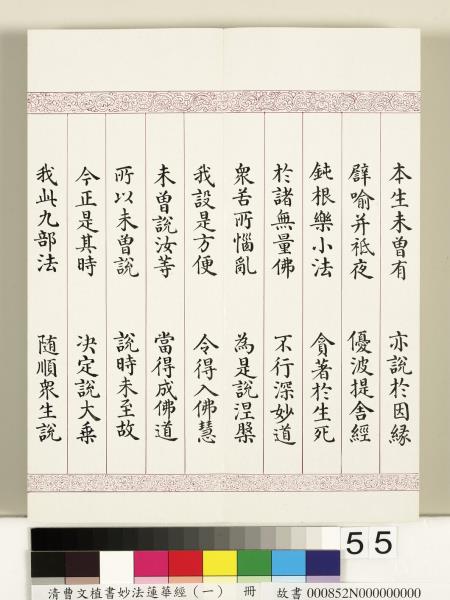 本生未曾有　亦說於因緣
譬喻并祇夜　優波提舍經
鈍根樂小法　貪著於生死
於諸無量佛　不行深妙道
眾苦所惱亂　為是說涅槃
我設是方便　令得入佛慧
未曾說汝等　當得成佛道
所以未曾說　說時未至故
今正是其時　决定說大乘
我此九部法　隨順眾生說
55
清曹文植書妙法蓮華經（一）　冊　故書 000852N000000000